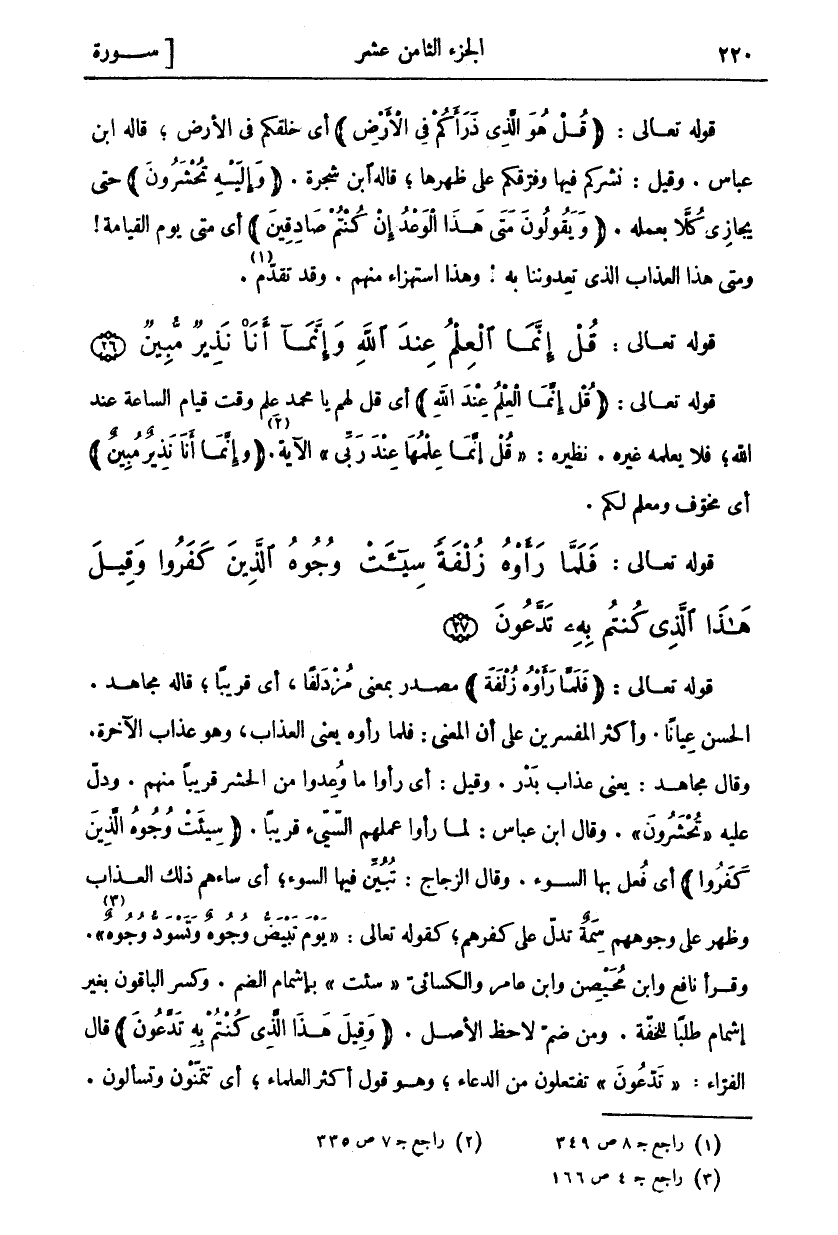 ٢٢٠ الجزء الثامن عشر [ سورة
قوله تعالى : ﴿ قُلْ هُوَ الَّذِى ذَرَأَكُمْ فِى الْأَرْضِ ﴾ أى خلقكم فى الأرض ؛ قاله ابن
عباس . وقيل : نشركم فيها وفرّقكم على ظهرها ؛ قاله ابن شجرة . ﴿ وَإِلَيْهِ تُحْشَرُونَ ﴾ حتى
يجازِى كُلًّا بعمله . ﴿ وَيَقُولُونَ مَتَى هَذَا الْوَعْدُ إِنْ كُنْتُمْ صَادِقِينَ ﴾ أى متى يوم القيامة !
ومتى هذا العذاب الذى تعدوننا به ! وهذا استهزاء منهم . وقد تقدّم (١) .
قوله تعالى : قُلْ إِنَّمَا ٱلْعِلْمُ عِندَ ٱللَّهِ وَإِنَّمَآ أَنَا۠ نَذِيرٌ مُّبِينٌ ٢٦
قوله تعالى : ﴿ قُل إِنَّمَا الْعِلْمُ عِنْدَ اللَّهِ ﴾ أى قل لهم يا محمد علم وقت قيام الساعة عند
الله ؛ فلا يعلمه غيره . نظيره : « قُلْ إِنَّمَا عِلْمُهَا عِنْدَ رَبِّى » الآية (٢) . ﴿ وإِنَّمَا أَنَا نَذِيرٌ مُبِينٌ ﴾
أى مخوّف ومعلم لكم .
قوله تعالى : فَلَمَّا رَأَوْهُ زُلْفَةً سِيٓـَٔتْ وُجُوهُ ٱلَّذِينَ كَفَرُوا وَقِيلَ
هَـٰذَا ٱلَّذِى كُنتُم بِهِۦ تَدَّعُونَ ٢٧
قوله تعالى : ﴿ فَلَمَّا رَأَوْهُ زُلْفَةً ﴾ مصدر بمعنى مُزْدَلفًا ، أى قريبًا ؛ قاله مجاهد .
الحسن عِيانًا . وأكثر المفسرين على أن المعنى : فلما رأوه يعنى العذاب ، وهو عذاب الآخرة .
وقال مجاهد : يعنى عذاب بَدْر . وقيل : أى رأوا ما وُعِدوا من الحشر قريباً منهم . ودلّ
عليه « تُحْشَرُونَ » . وقال ابن عباس : لما رأوا عملهم السَّيِّىء قريبًا . ﴿ سِيئَتْ وُجُوهُ الَّذِينَ
كَفَرُوا ﴾ أى فُعل بها السوء . وقال الزجاج : تُبُيِّن فيها السوء ؛ أى ساءهم ذلك العذاب
وظهر على وجوههم سِمَةٌ تدلّ على كفرهم ؛ كقوله تعالى : « يَوْمَ تَبْيَضُّ وُجُوهٌ وَتَسْوَدُّ وُجُوهٌ (٣) » .
وقرأ نافع وابن مُحَيْصِن وابن عامر والكسائىّ « سئت » بإشمام الضم . وكسر الباقون بغير
إشمام طلبًا للخفّة . ومن ضمّ لاحظ الأصل . ﴿ وَقِيلَ هَذَا الَّذِى كُنْتُمْ بِهِ تَدَّعُونَ ﴾ قال
الفرّاء : « تَدّعُونَ » تفتعلون من الدعاء ؛ وهو قول أكثر العلماء ؛ أى تتمنّون وتسألون .
(١) راجع ج ٨ ص ٣٤٩ (٢) راجع ج ٧ ص ٣٣٥
(٣) راجع ج ٤ ص ١٦٦